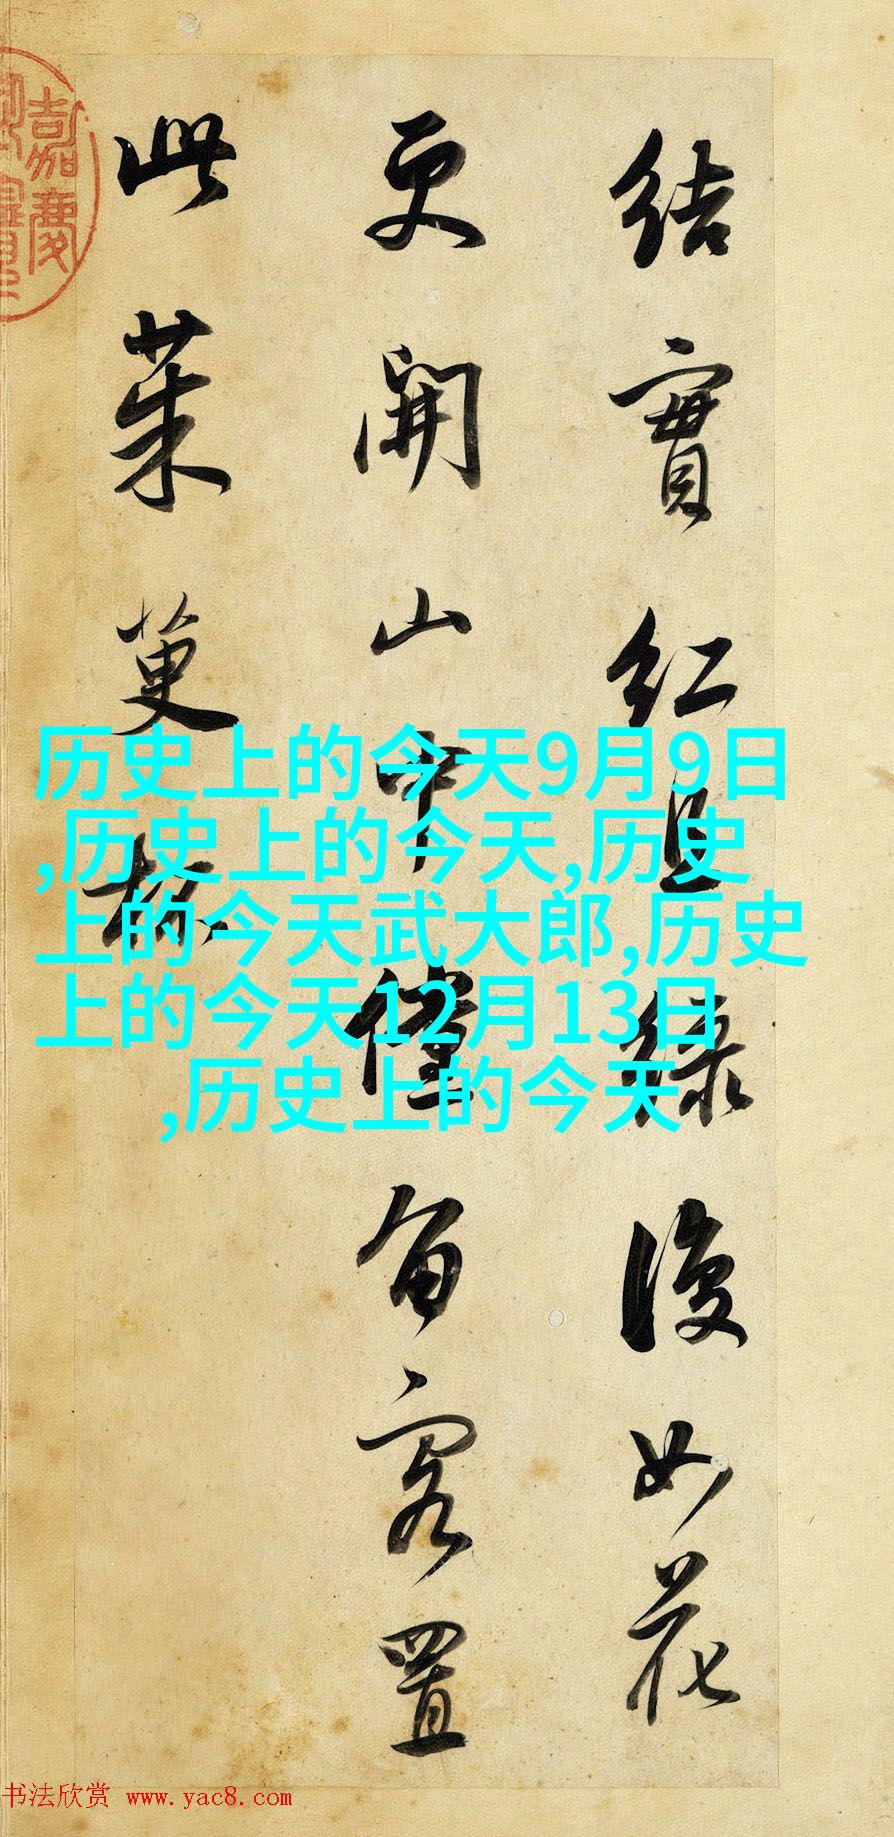 結實紅且綠復如花
更開山中儻留客置
此茱萸杯
嘉慶
历史上的今天9月9日
,历史上的今天,历史
上的今天武大郎,历史
上的今天12月13日
,历史上的今天
书法欣赏 www.yac8.com